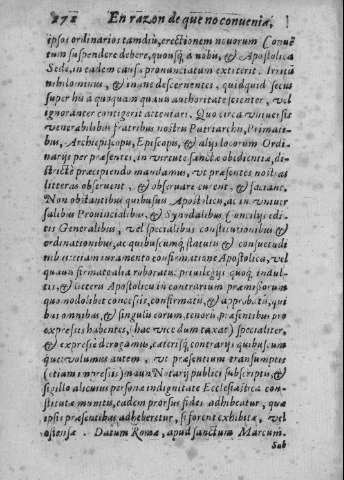 272 En razon de que no conuenia,
ipsos ordinarios tamdiu, erectionem nouorum Conuē
tum suspendere debere, quousq; a nobis, & Apostolica
Sede, in eadem causa pronunciatum extiterit. Irritū
nihilominus, & inane descernentes, quidquid secus
super his a quoquam quauis authoritate scienter, vel
ignoranter contigerit attentari. Quo circa vniuersis
venerabilibus fratribus nostris Patriarchis, Primati-
bus, Archiepiscopis, Episcopis, & alijs locorum Ordi-
narijs per præsentes, in virtute sanctæ obidientiæ, di-
strictè præcipiendo mandamus, vt præsentes nostras
litteras obseruent, & obseruare curent, & faciant.
Non obstantibus quibusuis Apostolicis, ac in vniuer
salibus Prouincialibus, & Synodalibus Concilijs edi-
tis Generalibus, vel specialibus constitucionibus &
ordinationibus, ac quibuscumq; statutis & consuetudi
nibus etiam iuramento confirmatione Apostolica, vel
quauis firmitate alia roboratis: priuilegijs quoq, indul-
tis, & litteris Apostolicis in contrarium præmissorum
quomodolibet concessis, confirmatis, & approbatis, qui
bus omnibus, & singulis eorum, tenoris præsentibus pro
expressis habentes, (hac vice dum taxat) specialiter,
& expresè derogamus, cæterisq; contrarijs quibuscum
que: volumus autem, vt præsentium transumptis
(etiam impressis) manu Notarij publici subscriptis, &
sigillo alicuius personæ in dignitate Ecclesiastica con-
stitutæ munitis, eadem prorsus fides adhibeatur, quæ
ipsis præsentibus adhiberetur, si forent exhibitæ, vel
ostensæ. Datum Romæ, apud sanctum Marcum.
Sub